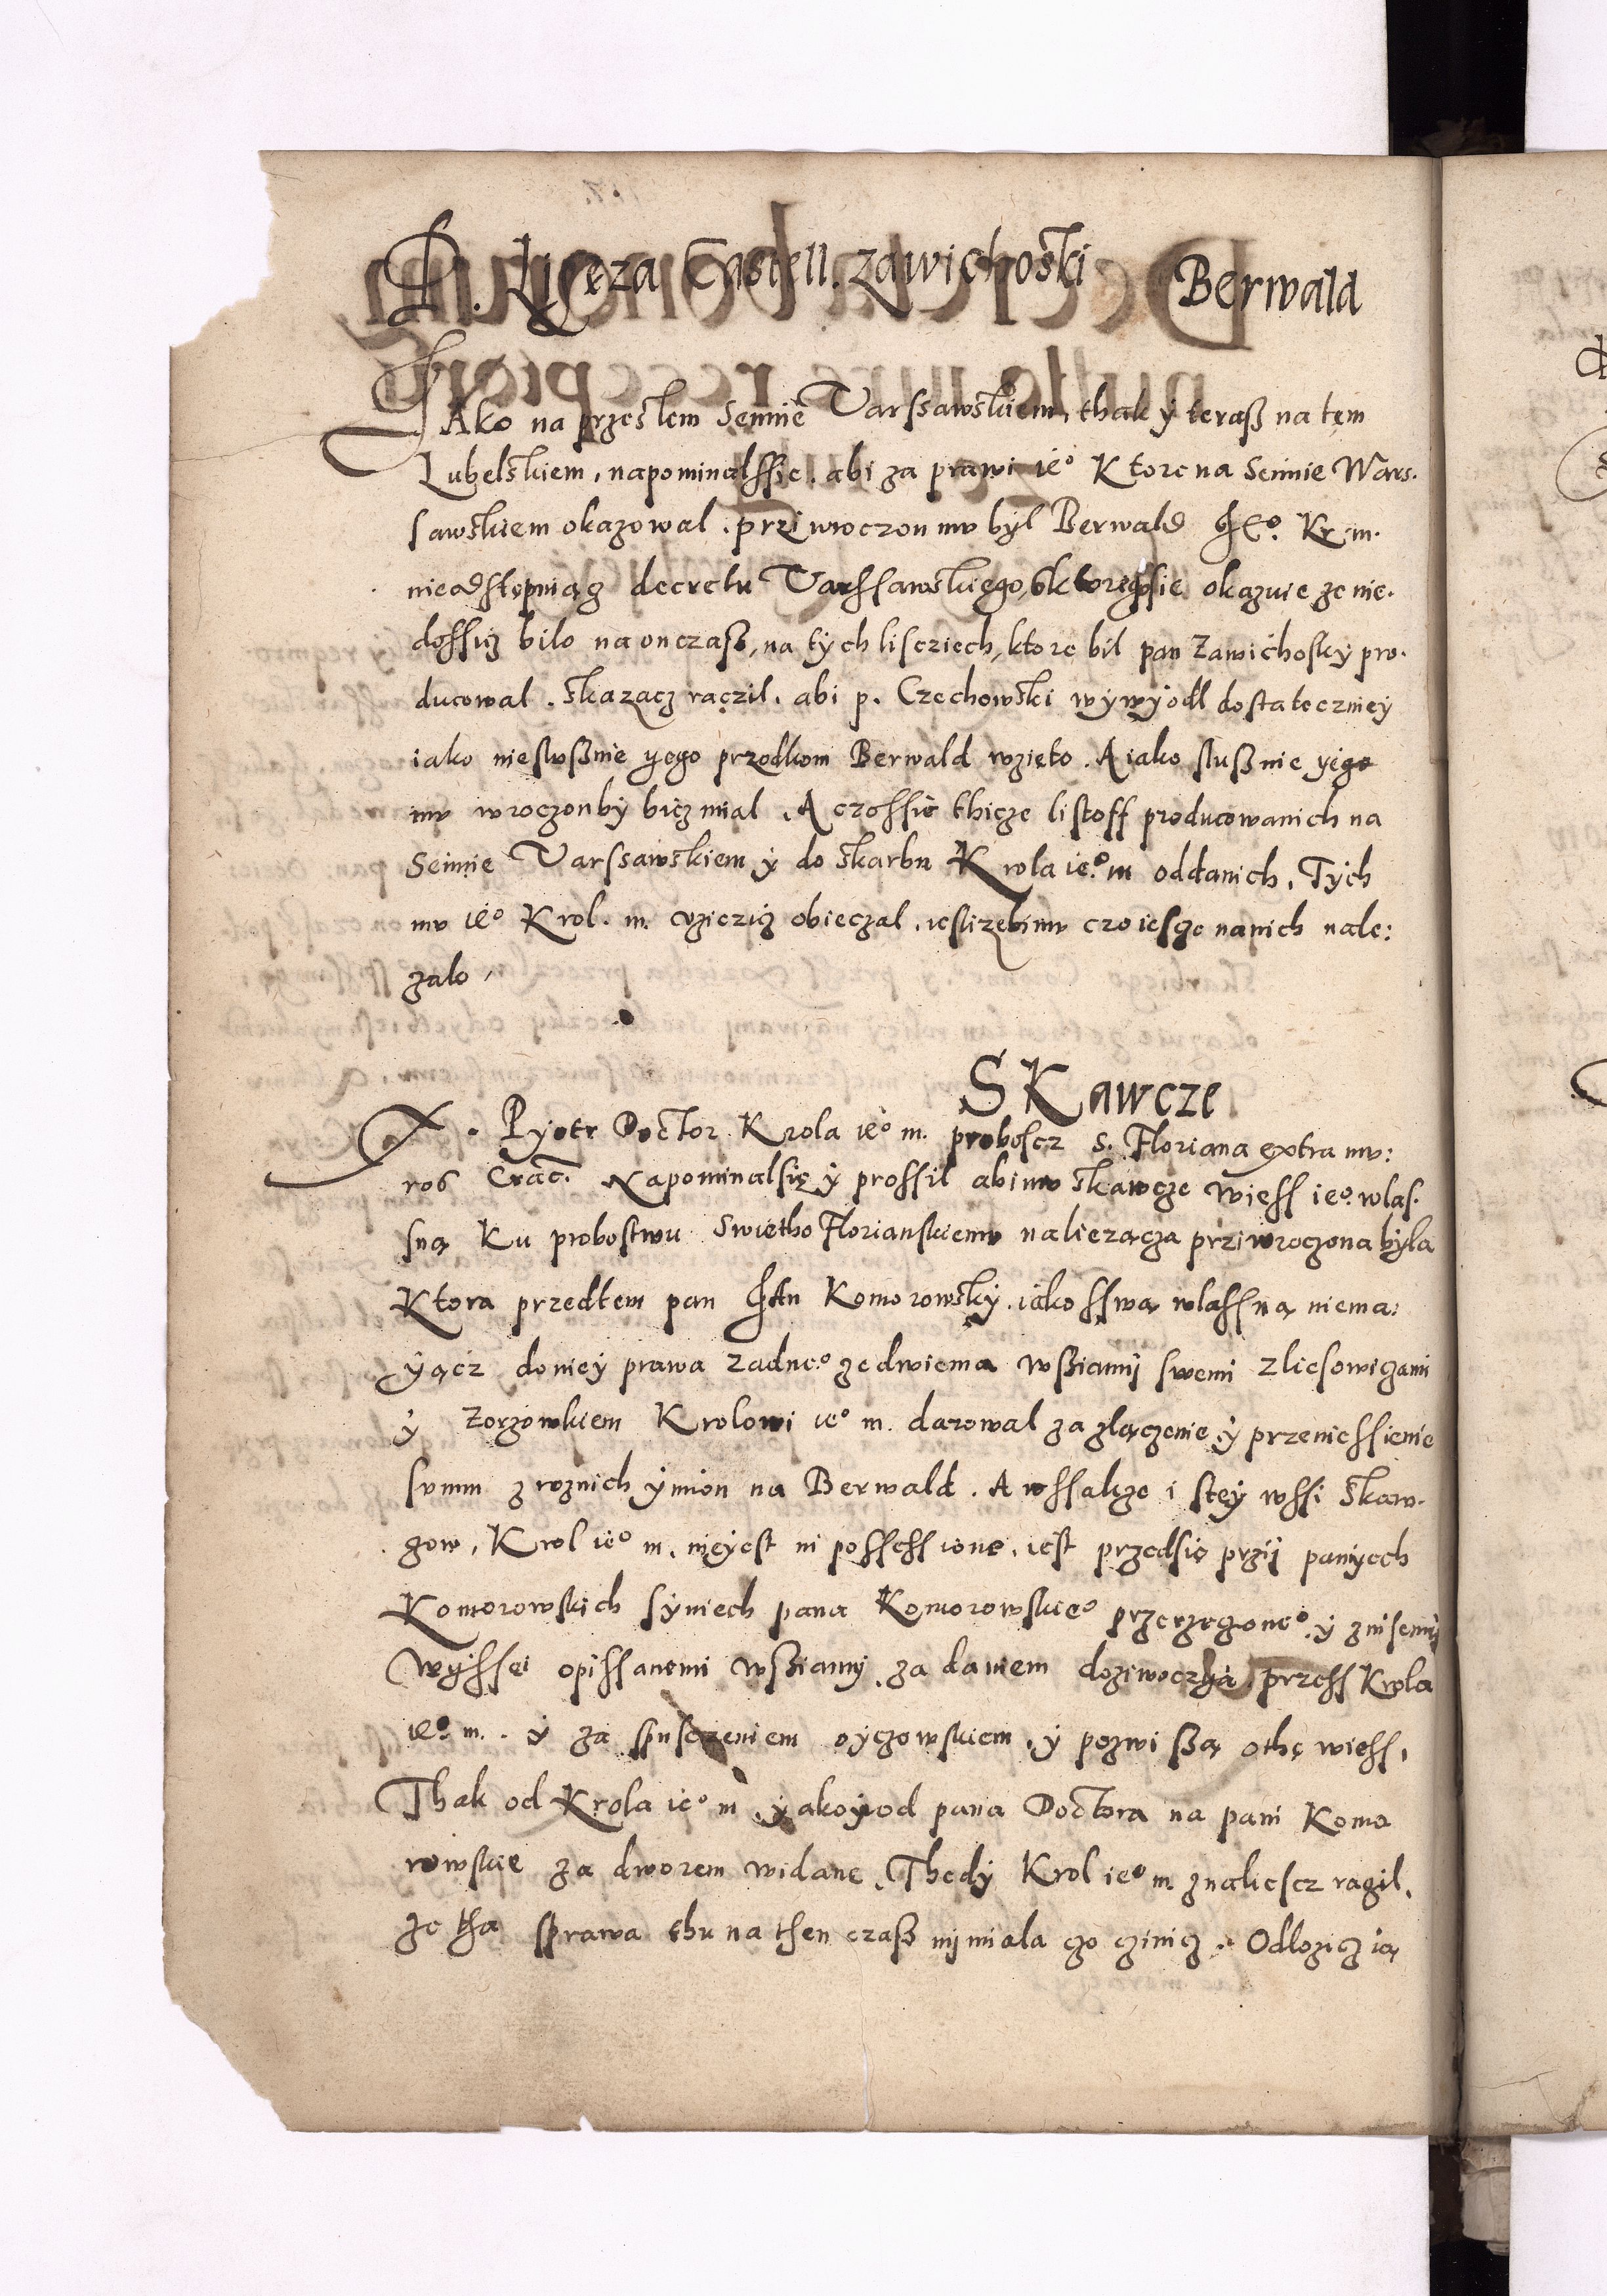 P. Ligęza Castell. zawichoski Berwald
JAko na przeslem Seimie Varssawskiem, thak ÿ teraß na tęm
Lubelskiem, napominalssie, abi za prawi ie° Ktore na Seimie Wars.
sawskiem okazowal, prziwroczon mv był Berwald JE°. Kr. m.
nieodstępuiącz decretu Varssawskiego, okazuie ze nie.
dossicz bilo na onczaß, na tych lisciech, ktore bil pan Zawichoskÿ pro.
ducowal. Skazacz raczil, abi p. Czechowski wÿwÿodl dostateczniej
iako nieslvßnie yego przodkom Berwald wzięto. A iako slußnie yego
mv wroczon bÿ bicz mial, A czossie thicze listoff producowanich na
Seimie Varssawskiem ÿ do skarbu Krola ie°. m oddanich, Tÿch
mv ie° Krol. m. obieczal, iesliżebimv czo iescze nanich nale:
zalo,
SKawcze
X. Pyotr Doctor Krola ie° m. proboscz S. Floriana extra mv:
ros Crac. Napominalsię ÿ prossil abimv Skawcze wiess ie°. wlas.
sną Ku probostwu Swietho Florianskiemv naliezącza prziwroczona byla
Ktora przedtem pan JAn Komorowskÿ, iako sswą wlassną niema:
ÿącz doniey prawa zadne° ze dwiema wßiami swemi zliesowiczami
ÿ Zorzowkiem Krolowi ie° m. darowal za złączenie ÿ przeniessienie
summ z roznich ÿmion na Berwald. A wssakze i stęÿ wssi Skaw.
zow, Krol ie° m. nięyest ni possessione, iest przedsię przij paniyech
Komorowskich sÿniech pana Komorowskie° przerzeczone°. ÿ znisemi
wyssei opissanemi wßiami, za daniem doziwoczia przess Krola
ie°. m. ÿ za spusczeniem oyczowskiem, ÿ pozwi ßą othę wiess,
Thak od Krola ie° m ÿako ÿ od pana Doctora na pani Komo
rowskie za dworem widane, Thedÿ Krol ie° m znaliescz raczil,
ze tha sprawa thu na then czaß nimiala czo czinicz. Odlozicz ią